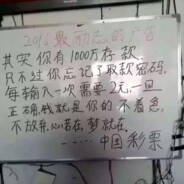 2016最励志的广告
其实你有1000万存款,
只不过你忘记了取款密码,
每输入一次需要2元,一旦
正确,钱就是你的 不着急,
不放弃,心若在,梦就在,
……中国彩票